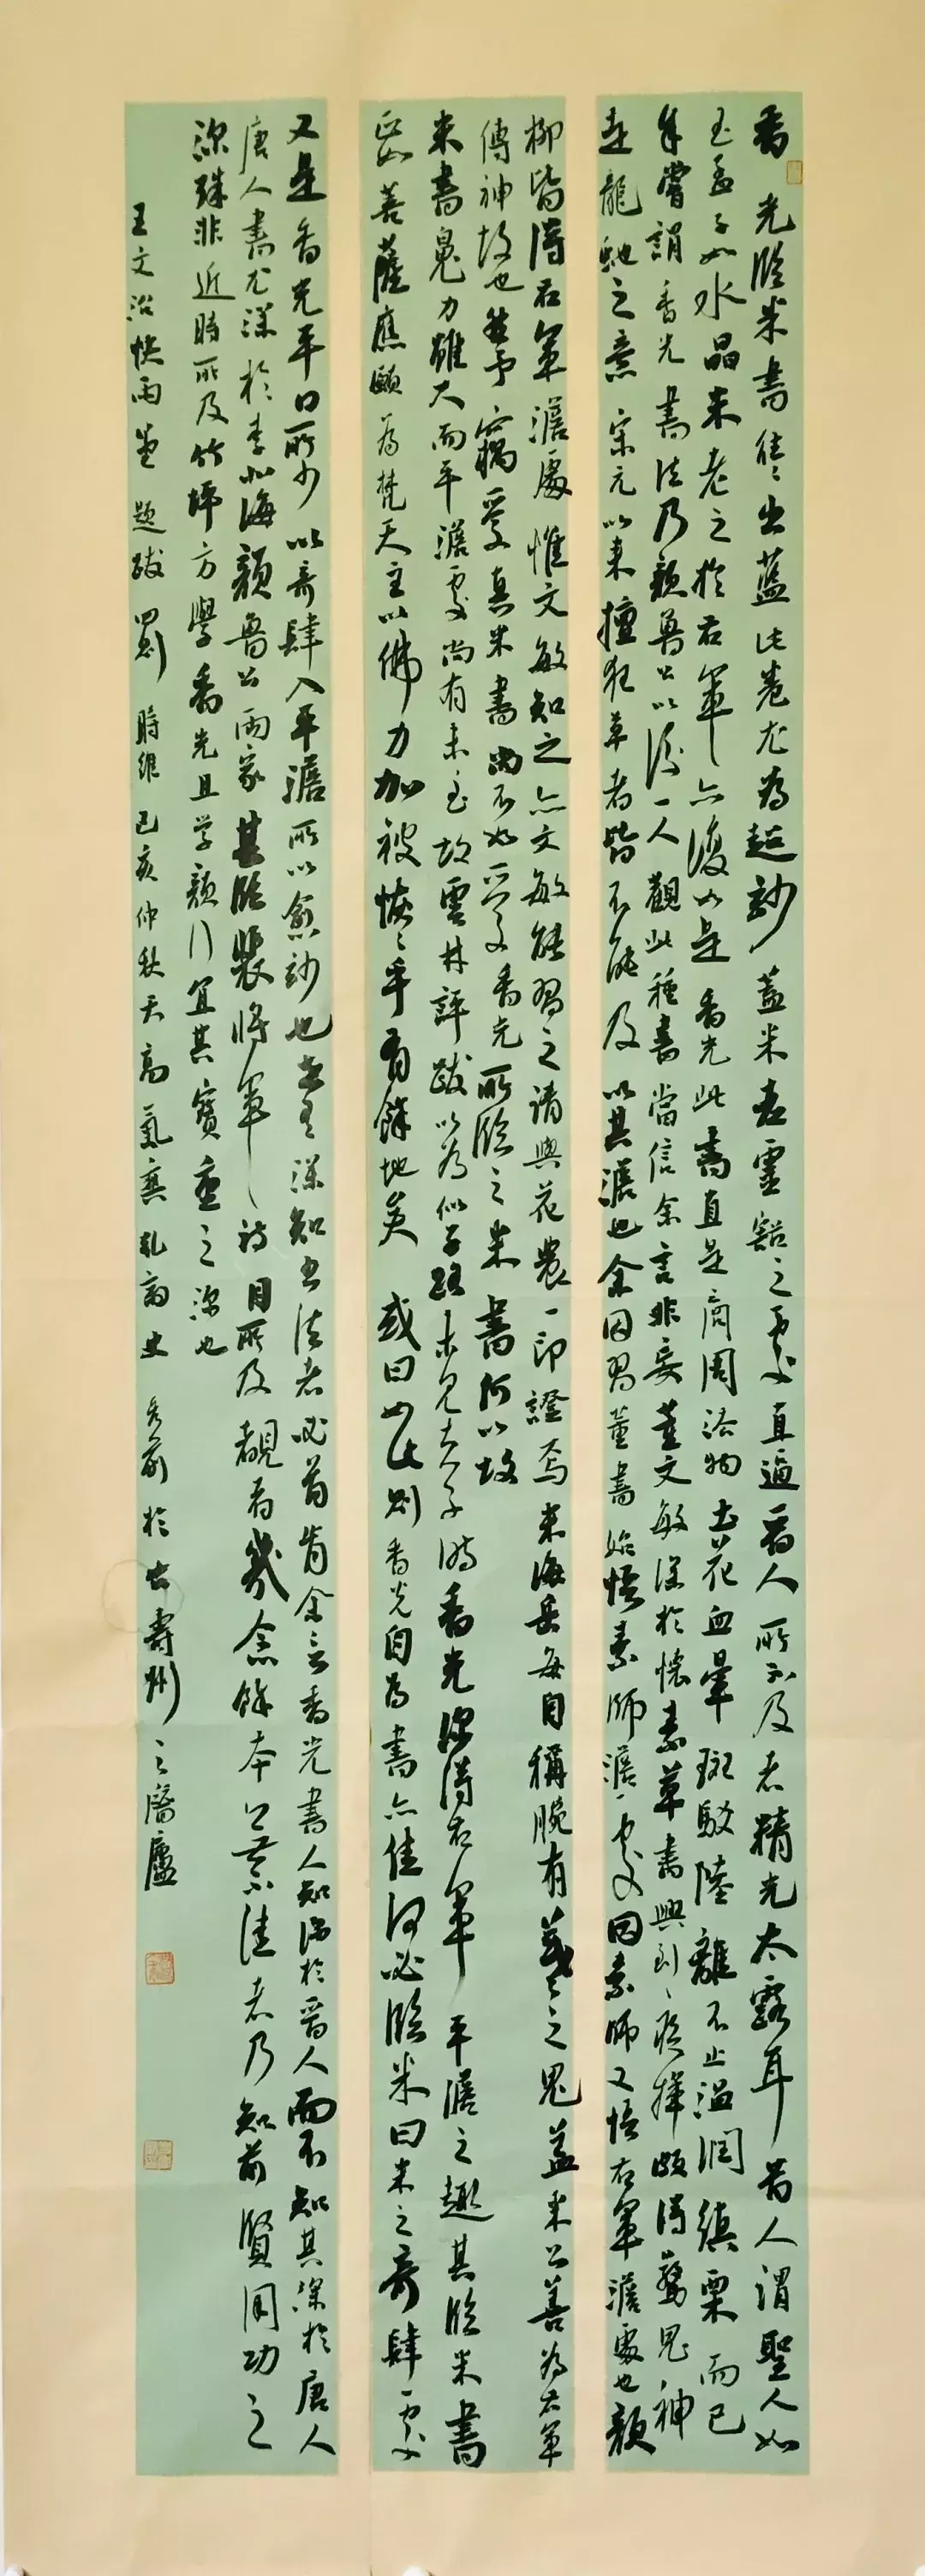 香光臨米書往往出藍此卷尤為超妙蓋米老靈豁之處直逼晉人所不及者精光太露耳昔人謂聖人如
玉孟子如水晶米老之於右軍亦復如是香光此書直是商周法物土花血暈斑駁陸離不止溫潤縝栗而已
余嘗謂香光書法乃顏魯公以後一人觀此種書當信余言非妄董文敏深於懷素草書興到疾揮頗得驚鬼神
走龍虵之意宋元以來擅狂草者皆不能及以其澹也余因習董書始悟素師澹處因素師又悟右軍澹處也顏
柳皆得右軍澹處惟文敏知之亦文敏能習之請與花農一印證焉米海岳每自稱腕有羲之鬼蓋米公善為右軍
傳神故也然予竊受真米書尚不如受香光所臨之米書何以故
米書鬼力雖大而平澹處尚有未至故雲林評跋以為似子路未見夫子時香光深得右軍平澹之趣其臨米書
正如菩薩應願為梵天主以佛力加被恢恢乎有餘地矣或曰如此則香光自為書亦佳何必臨米曰米之奇肆處
又是香光平日所少以奇肆入平澹所以愈妙也世有深知書法者必首肯余言香光書人知深於晉人而不知其深於唐人
唐人書尤深於李北海顏魯公兩家其臨裴將軍詩目所及覩者幾余餘本公無不佳者乃知前賢用功之
深殊非近時所及竹坪方學香光且学顏行宜其寶重之深也
王文治快雨堂題跋四則時維己亥仲秋天高氣爽於古壽州之醫廬